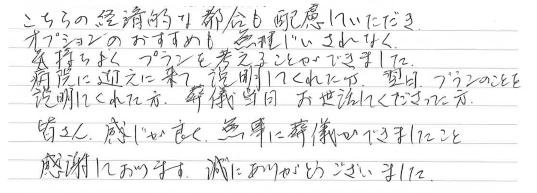 こちらの経済的な都合も配慮していただき
オプションのおすすめも無理じいされなく、
気持ちよくプランを考えることができました。
病院に迎えに来て説明してくれた方 翌日、プランのことを
説明してくれた方、葬儀当日 お世話してくださった方、
皆さん、感じが良く、無事に葬儀ができましたこと
感謝しております。誠にありがとうございました。